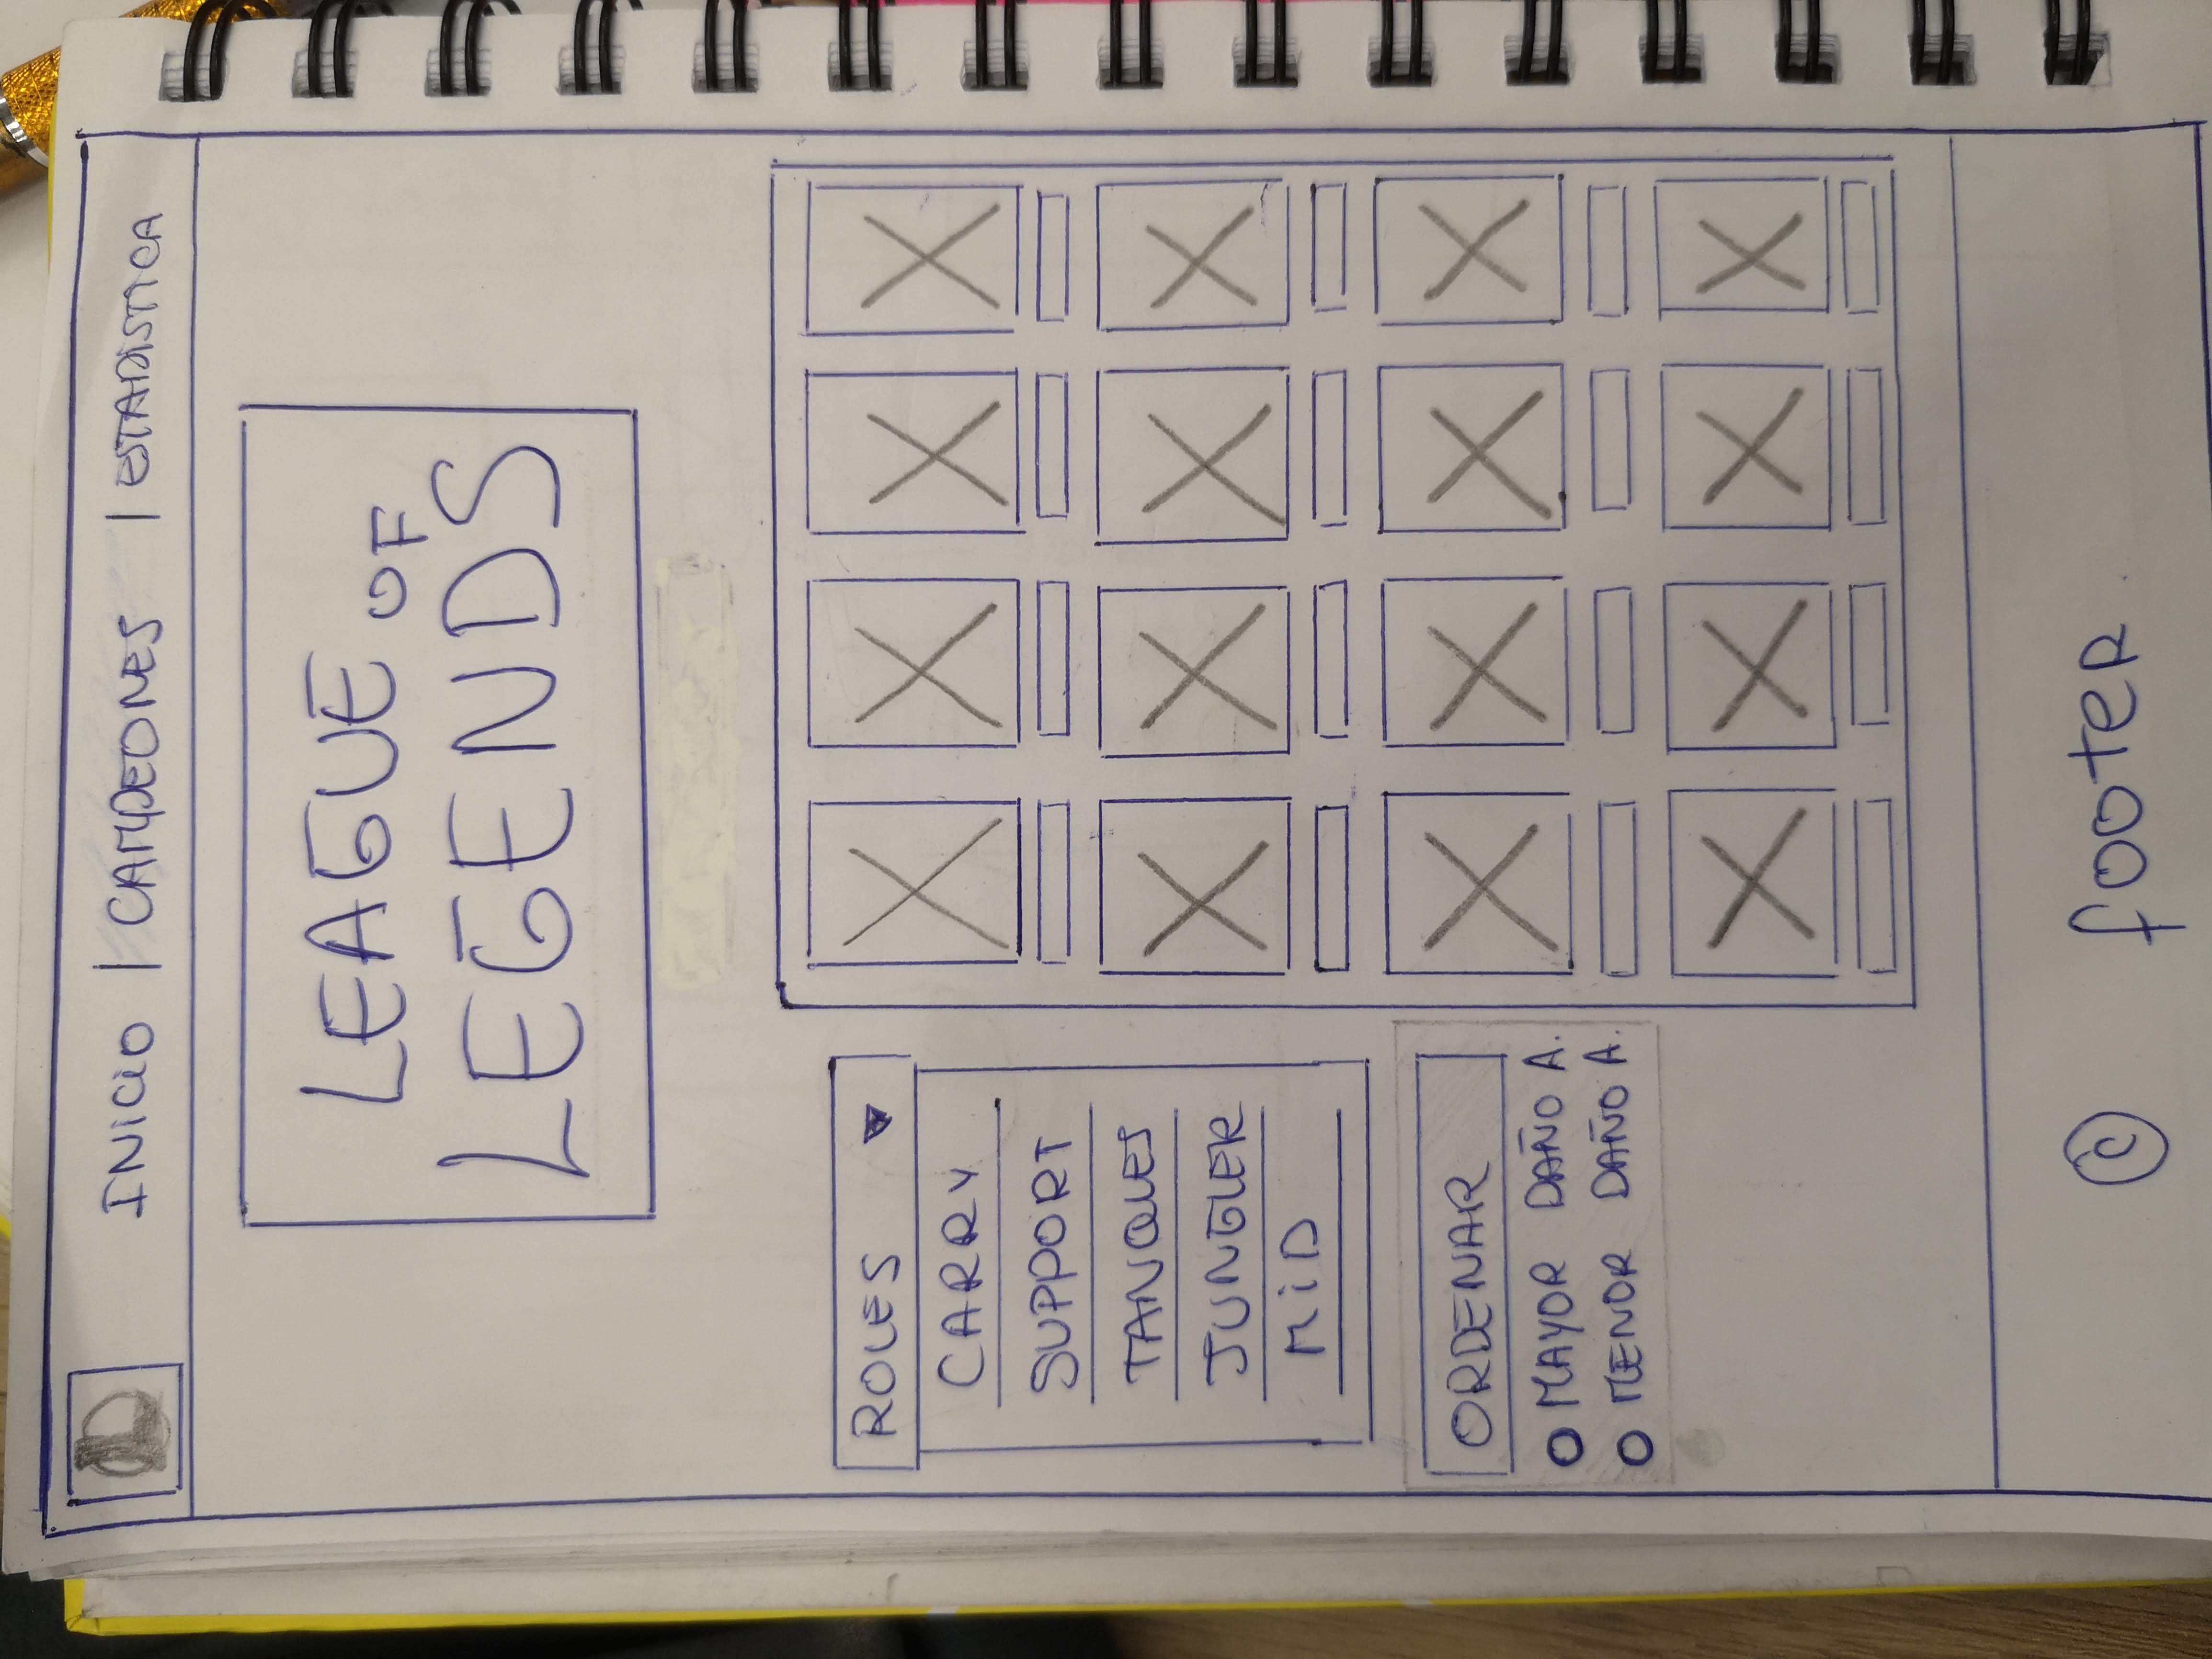 L
INICIO | CAMPEONES | ESTADISTICA
LEAGUE OF
LEGENDS
ROLES
CARRY
SUPPORT
TANQUES
JUNGLER
MID
ORDENAR
MAYOR DAÑO A.
MENOR DAÑO A.
© footer